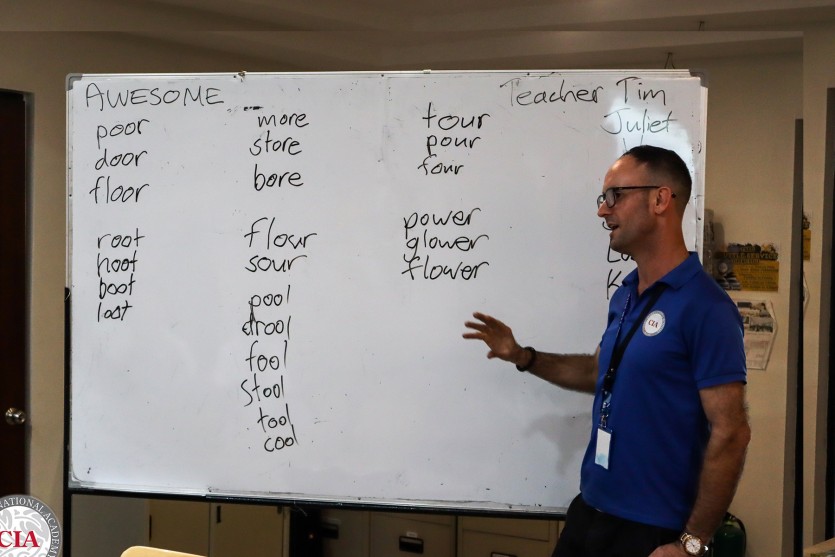 AWESOME
poor
door
floor
root
hoot
boot
loot
more
store
bore
flour
sour
pool
drool
fool
stool
tool
cool
tour
pour
four
power
glower
flower
Teacher Tim
Juliet
CIA
CIA